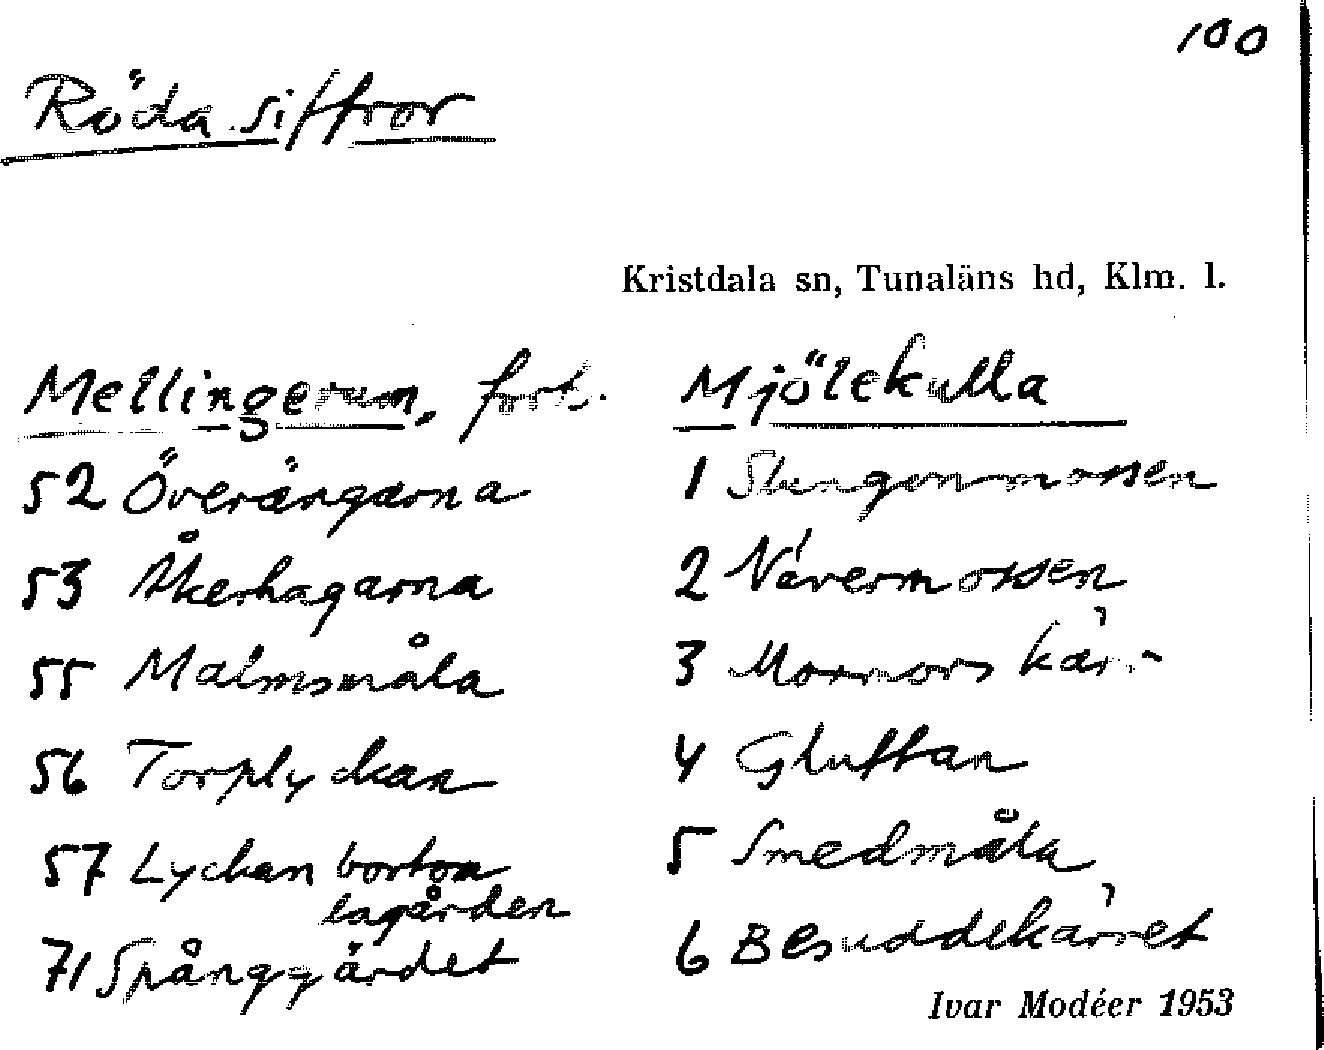 100
Röda siffror
Kristdala sn, Tunaläns hd, Klm. l.
Mellingerum, forts.
52 Överängarna
53 Åkerhagarna
55 Malmsmåla
56 Torplyckan
57 Lyckan borton
lagården
71 Spånggärdet
Mjölekulla
1
2 Nävermossen
3 Mormors kärr
4 Gluffan
5 Smedmåla
6 Besuddekärret
Ivar Modéer 1953